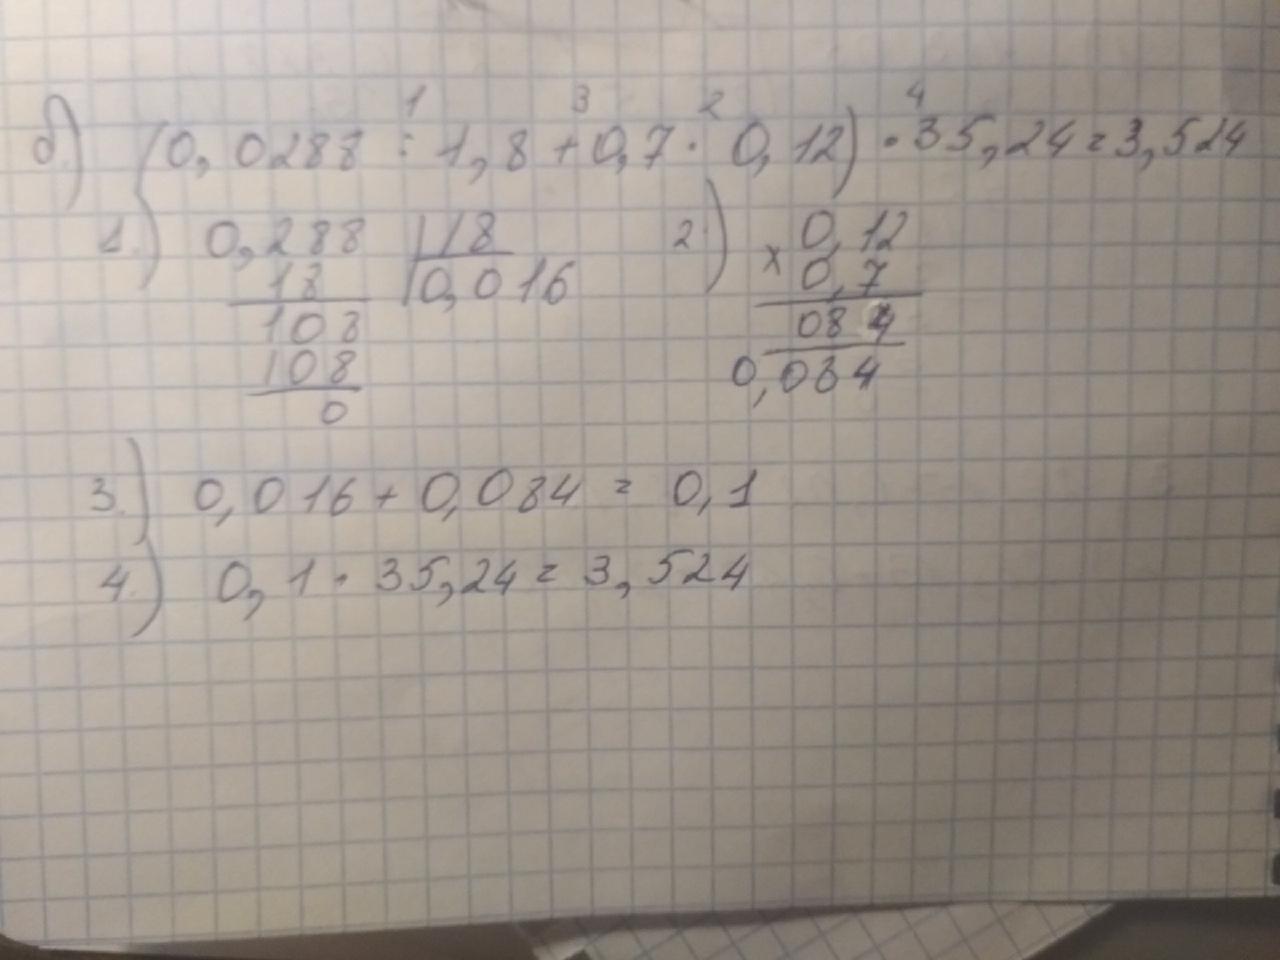 б) (0,0288 : 1,8 + 0,7 · 0,12) · 35,24 = 3,524
1 3 2 4
1.) 0,288 | 18
18 | 0,016
108
108
0
2.) × 0,12
0,7
084
0,084
3.) 0,016 + 0,084 = 0,1
4.) 0,1 · 35,24 = 3,524